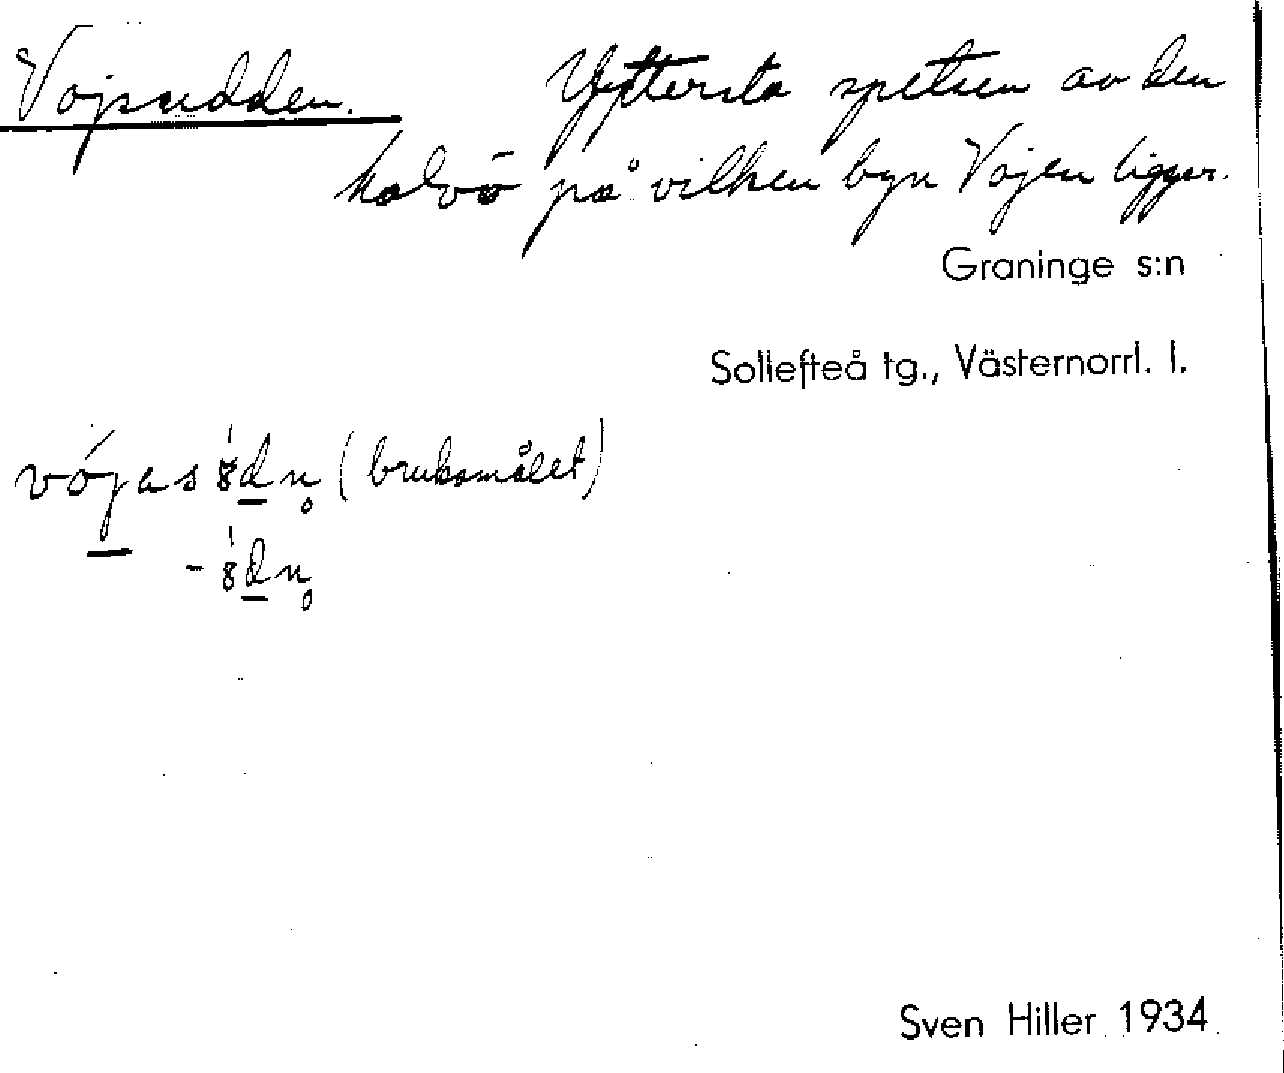 Vojsudden. Yttersta spetsen av den
halvö på vilken byn Vojen ligger.
Graninge s:n
Sollefteå tg., Västernorrl. l.
(bruksmålet)
Sven Hiller 1934